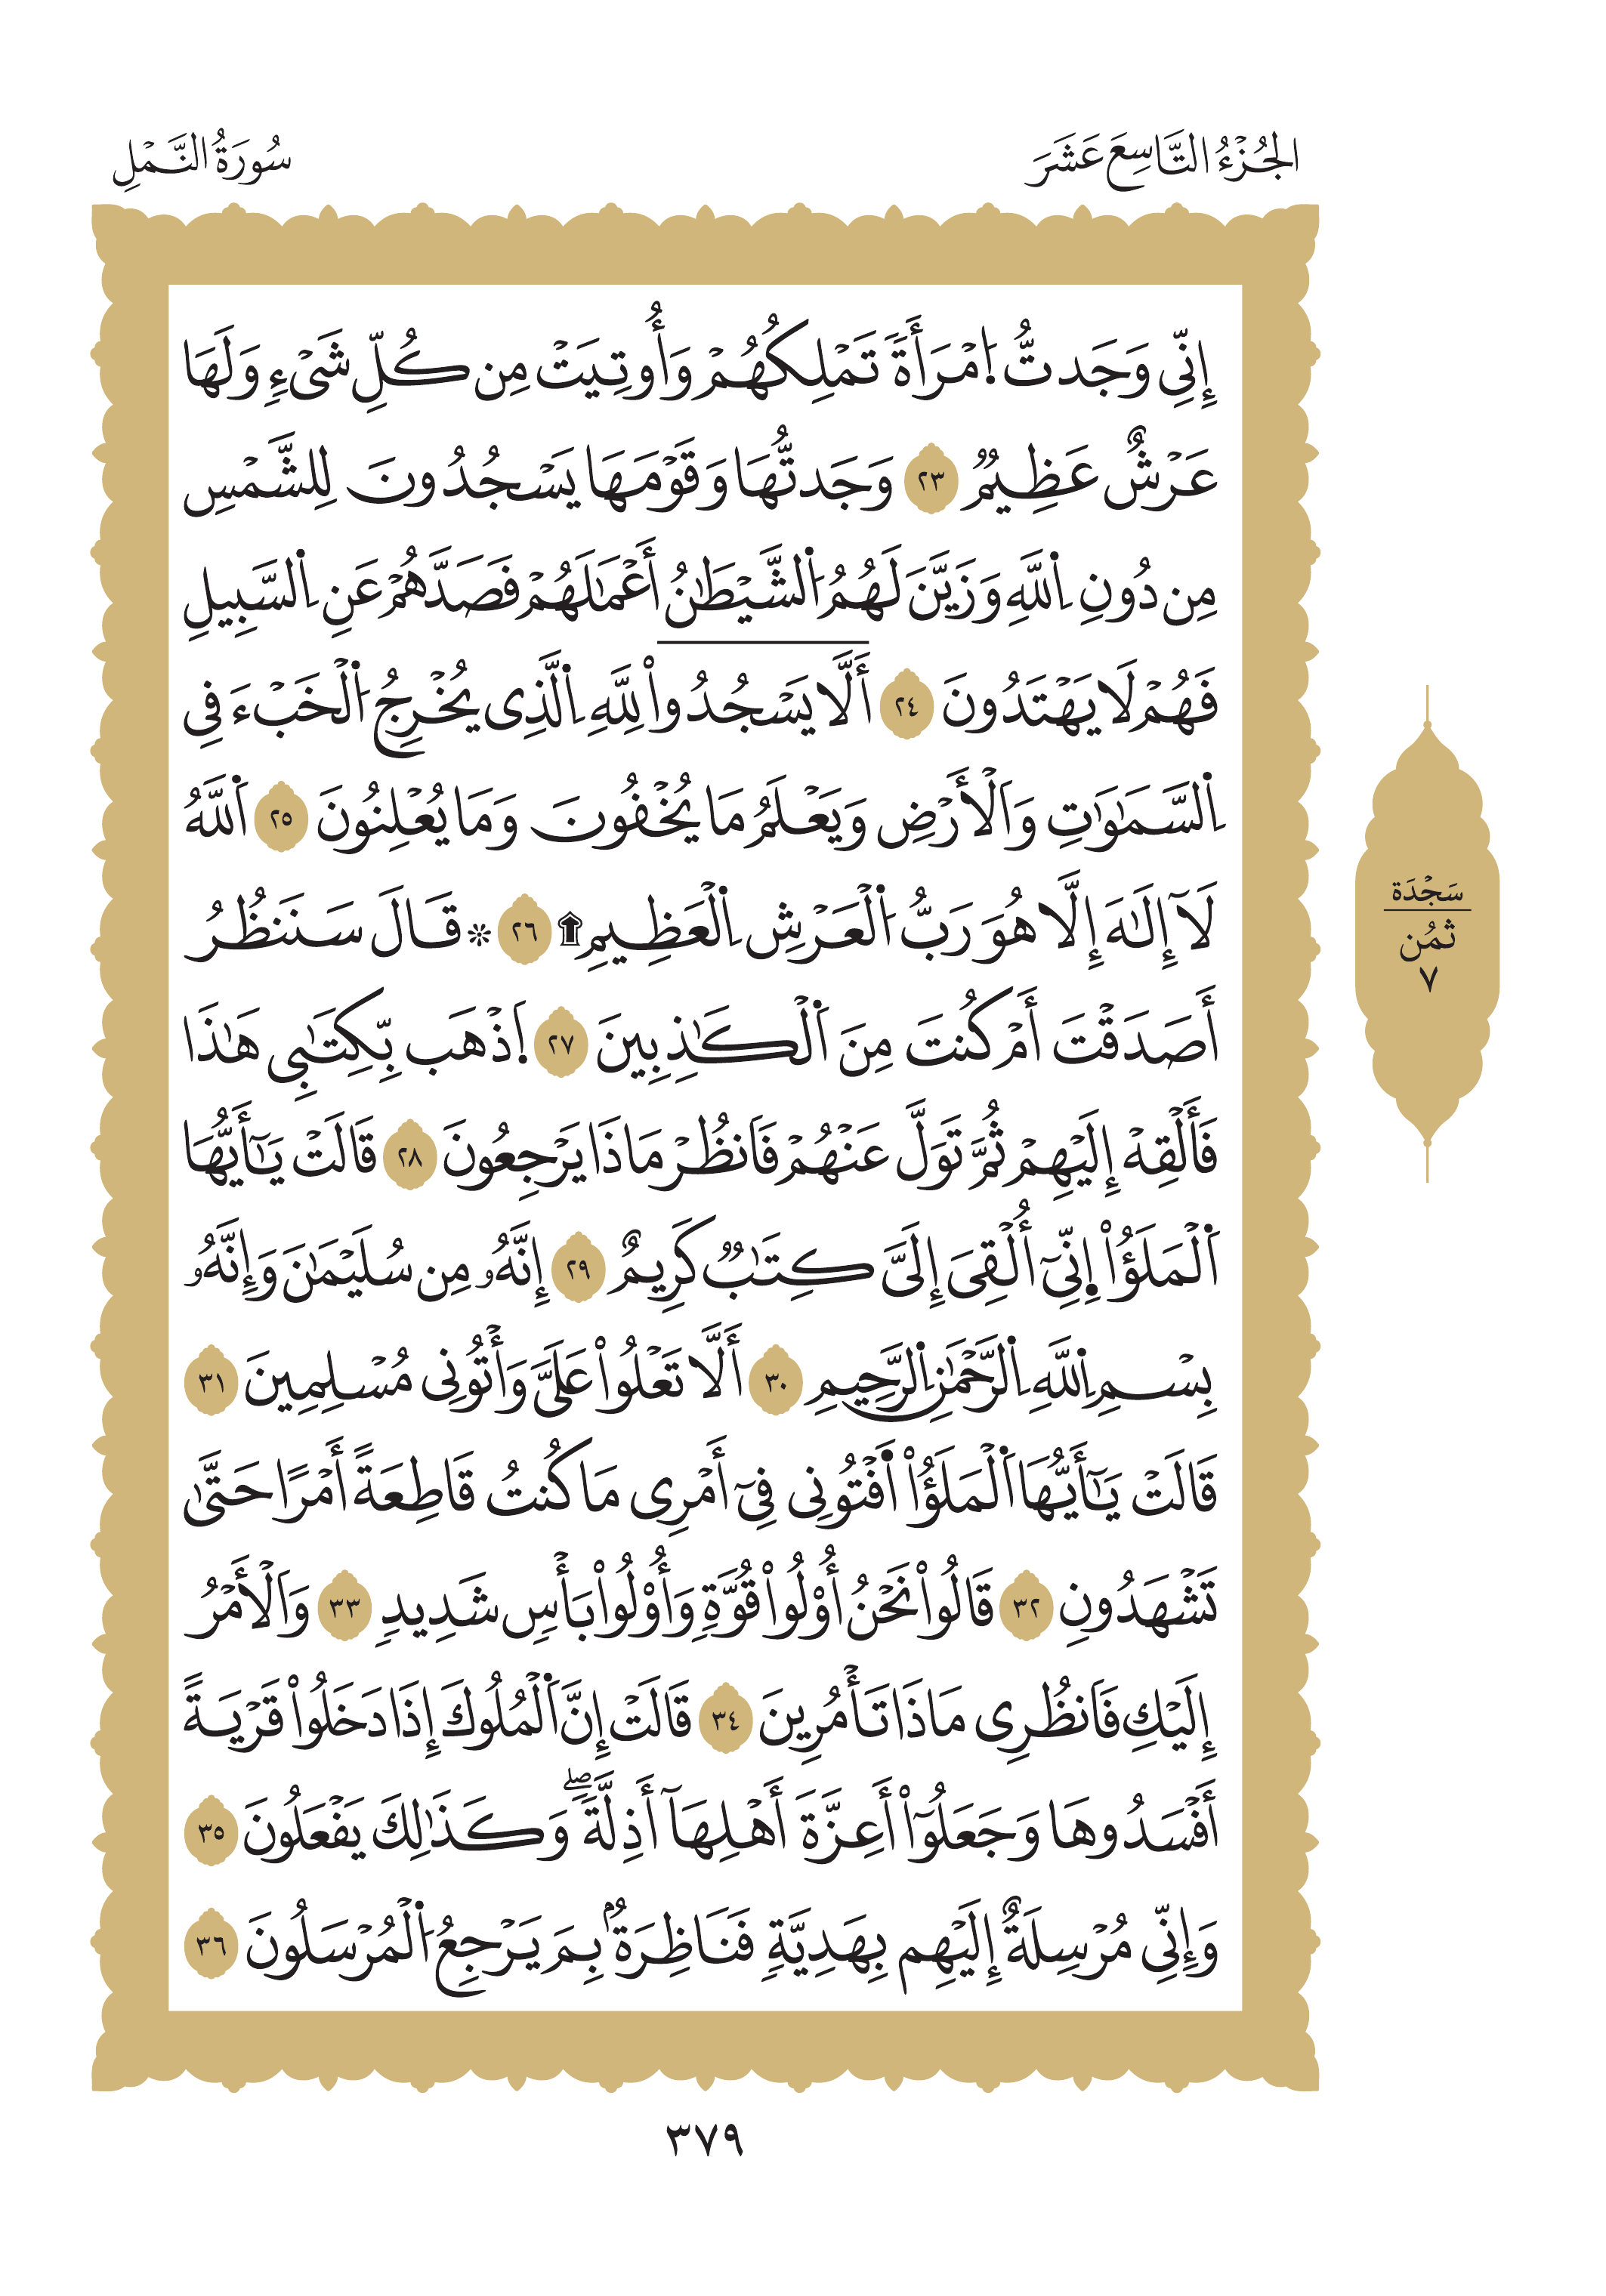 الجُزْءُ التَّاسِعَ عَشَرَ
سُورَةُ النَّمْلِ
إِنِّي وَجَدتُّ اُ۪مْرَأَةٗ تَمْلِكُهُمْ وَأُوتِيَتْ مِن كُلِّ شَيْءٖ وَلَهَا
عَرْشٌ عَظِيمٞ ٢٣ وَجَدتُّهَا وَقَوْمَهَا يَسْجُدُونَ لِلشَّمْسِ
مِن دُونِ اِ۬للَّهِ وَزَيَّنَ لَهُمُ اُ۬لشَّيْطَٰنُ أَعْمَٰلَهُمْ فَصَدَّهُمْ عَنِ اِ۬لسَّبِيلِ
فَهُمْ لَا يَهْتَدُونَ ٢٤ أَلَّا يَسْجُدُواْ لِلَّهِ اِ۬لَّذِي يُخْرِجُ اُ۬لْخَبْءَ فِي
اِ۬لسَّمَٰوَٰتِ وَاَلْأَرْضِ وَيَعْلَمُ مَا يُخْفُونَ وَمَا يُعْلِنُونَ ٢٥ اَ۬للَّهُ
لَآ إِلَٰهَ إِلَّا هُوَ رَبُّ اُ۬لْعَرْشِ اِ۬لْعَظِيمِ ۩ ٢٦ ۞ قَالَ سَنَنظُرُ
أَصَدَقْتَ أَمْ كُنتَ مِنَ اَ۬لْكَٰذِبِينَ ٢٧ اَ۪ذْهَب بِّكِتَٰبِي هَٰذَا
فَأَلْقِهْ إِلَيْهِمْ ثُمَّ تَوَلَّ عَنْهُمْ فَاَنظُرْ مَاذَا يَرْجِعُونَ ٢٨ قَالَتْ يَٰٓأَيُّهَا
اَ۬لْمَلَؤُاْ اِ۪نِّيٓ أُلْقِيَ إِلَيَّ كِتَٰبٞ كَرِيمٌ ٢٩ إِنَّهُۥ مِن سُلَيْمَٰنَ وَإِنَّهُۥ
بِسْمِ اِ۬للَّهِ اِ۬لرَّحْمَٰنِ اِ۬لرَّحِيمِ ٣٠ أَلَّا تَعْلُواْ عَلَيَّ وَأْتُونِي مُسْلِمِينَ ٣١
قَالَتْ يَٰٓأَيُّهَا اَ۬لْمَلَؤُاْ اَ۬فْتُونِي فِيٓ أَمْرِي مَا كُنتُ قَاطِعَةً أَمْرًا حَتَّىٰ
تَشْهَدُونِ ٣٢ قَالُواْ نَحْنُ أُوْلُواْ قُوَّةٖ وَأُوْلُواْ بَأْسٖ شَدِيدٖ ٣٣ وَاَلْأَمْرُ
إِلَيْكِ فَاَنظُرِي مَاذَا تَأْمُرِينَ ٣٤ قَالَتْ إِنَّ اَ۬لْمُلُوكَ إِذَا دَخَلُواْ قَرْيَةً
أَفْسَدُوهَا وَجَعَلُوٓاْ أَعِزَّةَ أَهْلِهَآ أَذِلَّةٗۖ وَكَذَٰلِكَ يَفْعَلُونَ ٣٥
وَإِنِّي مُرْسِلَةٌ إِلَيْهِم بِهَدِيَّةٖ فَنَاظِرَةُۢ بِمَ يَرْجِعُ اُ۬لْمُرْسَلُونَ ٣٦
سَجْدَة
ثمُن
٧
٣٧٩